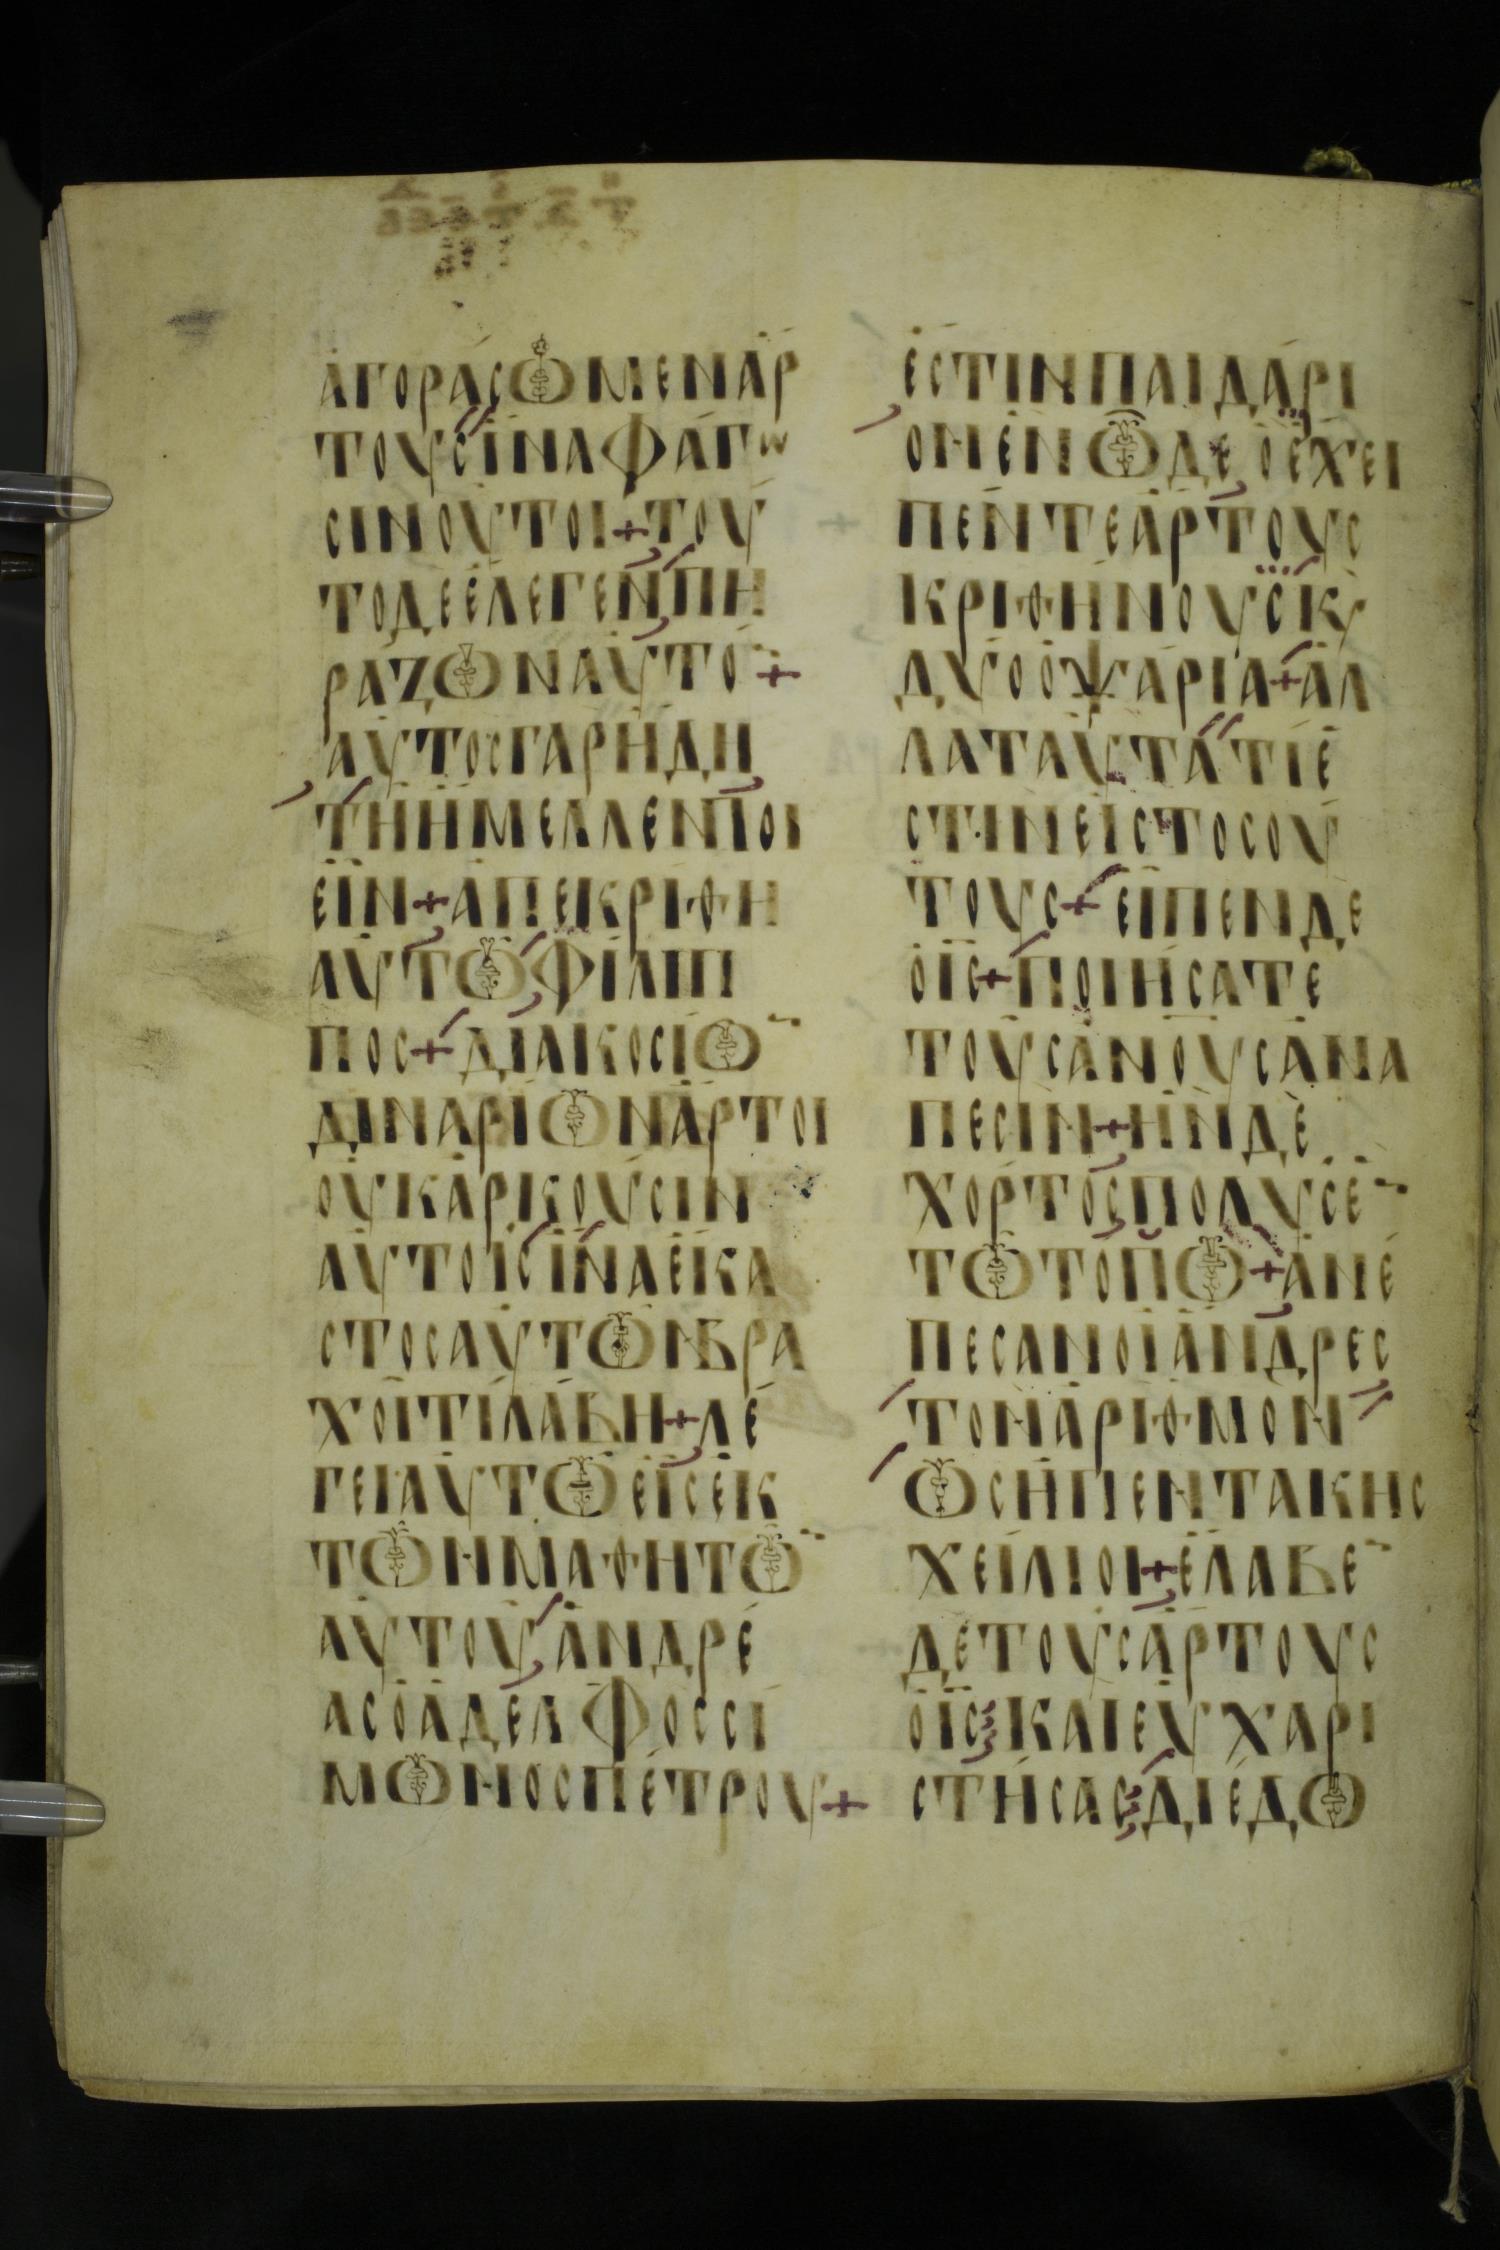 ἀγοράσωμεν ἄρ
τους ἵνα φάγω
σιν οὗτοι + τοῦ
το δὲ ἔλεγεν πη
ράζων αὐτό̅ +
αὐτος γαρ ἤδη
τι ἤμελλεν ποι
εῖν + ἀπεκρίθη
αὐτῷ φίλιπ
πος + διακοσίω̅
διναρίων ἄρτοι
οὐκ ἀρκοῦσιν
αὐτοῖς ἵνα ἕκα
στος αὐτῶν βρα
χοί τι λάβη + λέ
γει αὐτῷ εἷς ἐκ
τῶν μαθητῶ̅
αὐτοῦ ἀνδρέ
ας ὁ ἀδελφος σί
μωνος πέτρου +
ἔστιν παιδάρι
ον ἓν ὧδε ὃ ἔχει
πέντε ἄρτους
κριθήνους κ
δύο ὀψάρια + ἀλ
λα ταῦτα τί ἐ
στιν εἰς τοσού
τους + εἶπεν δὲ
ὁ ις + ποιήσατε
τοὺς ἀνους ἀνα
πεσῖν + ἦν δὲ
χόρτος πολυς ἐ̅
τω τόπω + ἀνέ
πεσαν οἱ ἄνδρες
τον ἀριθμον
ωσὴ πεντακης
χείλιοι + ἔλαβε̅
δὲ τοὺς ἄρτους
ὁ ις και εὐχαρι
στήσας διέδω